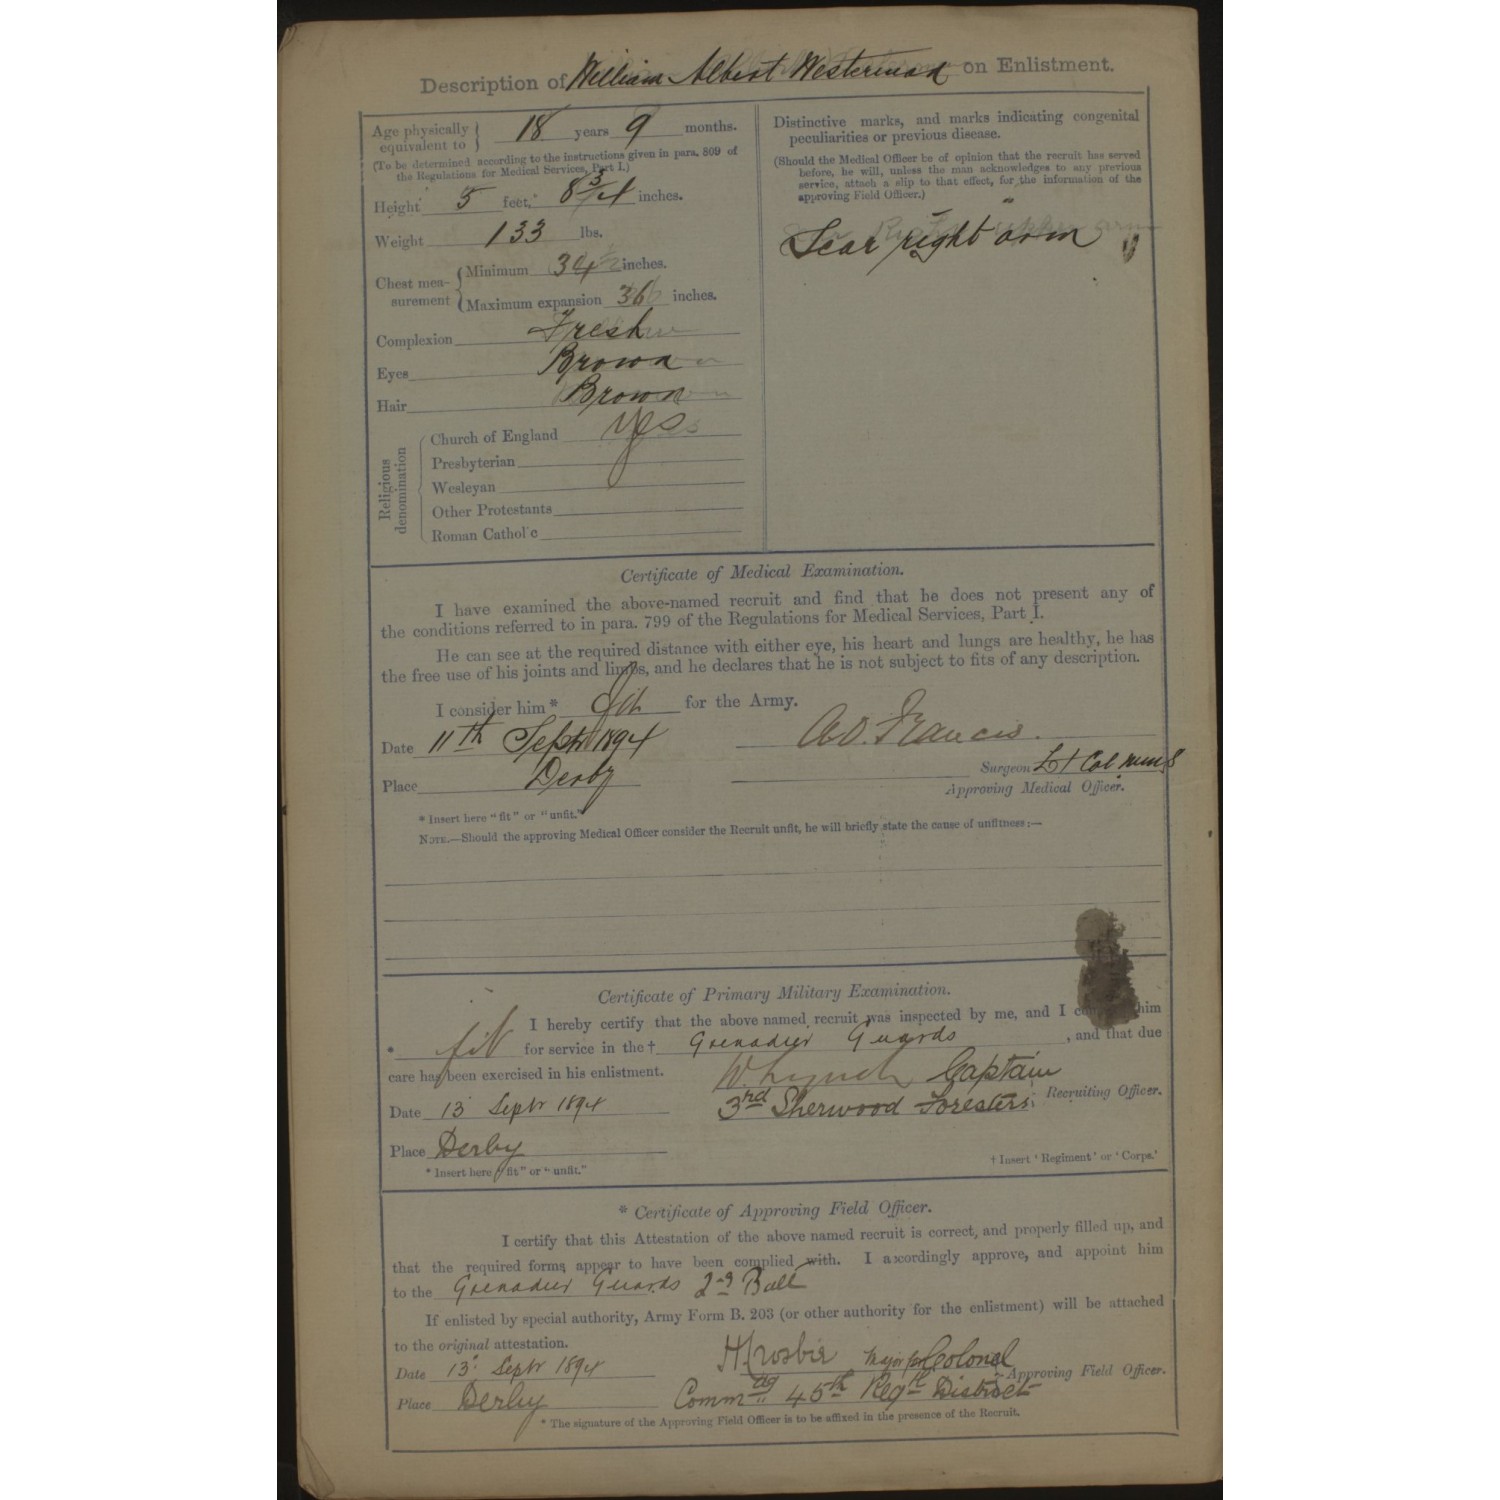 Description of William Albert Westermad on Enlistment.
Age physically equivalent to } 18 years 9 months.
(To be determined according to the instructions given in para. 809 of
the Regulations for Medical Services, Part I.)
Height 5 feet, 8 3/4 inches.
Weight 133 lbs.
Chest mea-
surement { Minimum 34 inches.
Maximum expansion 36 inches.
Complexion Fresh
Eyes Brown
Hair Brown
Religious denomination
Church of England yes
Presbyterian
Wesleyan
Other Protestants
Roman Catholic
Distinctive marks, and marks indicating congenital
peculiarities or previous disease.
(Should the Medical Officer be of opinion that the recruit has served
before, he will, unless the man acknowledges to any previous
service, attach a slip to that effect, for the information of the
approving Field Officer.)
Scar right arm
Certificate of Medical Examination.
I have examined the above-named recruit and find that he does not present any of
the conditions referred to in para. 799 of the Regulations for Medical Services, Part I.
He can see at the required distance with either eye, his heart and lungs are healthy, he has
the free use of his joints and limbs, and he declares that he is not subject to fits of any description.
I consider him * fit for the Army.
Date 11th Septr 1894 Francis.
Surgeon Lt Col
Place Derby
Approving Medical Officer.
* Insert here "fit" or "unfit."
NOTE.—Should the approving Medical Officer consider the Recruit unfit, he will briefly state the cause of unfitness:—
Certificate of Primary Military Examination.
I hereby certify that the above named recruit was inspected by me, and I him
* fit for service in the † Grenadier Guards , and that due
care has been exercised in his enlistment.
W. Lynch Captain
Date 13 Septr 1894 3rd Sherwood Foresters Recruiting Officer.
Place Derby
* Insert here "fit" or "unfit."
† Insert 'Regiment' or 'Corps.'
* Certificate of Approving Field Officer.
I certify that this Attestation of the above named recruit is correct, and properly filled up, and
that the required forms appear to have been complied with. I accordingly approve, and appoint him
to the Grenadier Guards 2nd Batt
If enlisted by special authority, Army Form B. 203 (or other authority for the enlistment) will be attached
to the original attestation.
H Crosbie Major for Colonel
Date 13 Septr 1894 Approving Field Officer.
Place Derby Commdg 45th Regtl District
* The signature of the Approving Field Officer is to be affixed in the presence of the Recruit.